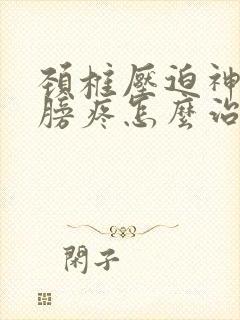 頚椎壓迫神
膀疼怎麼治
閑子